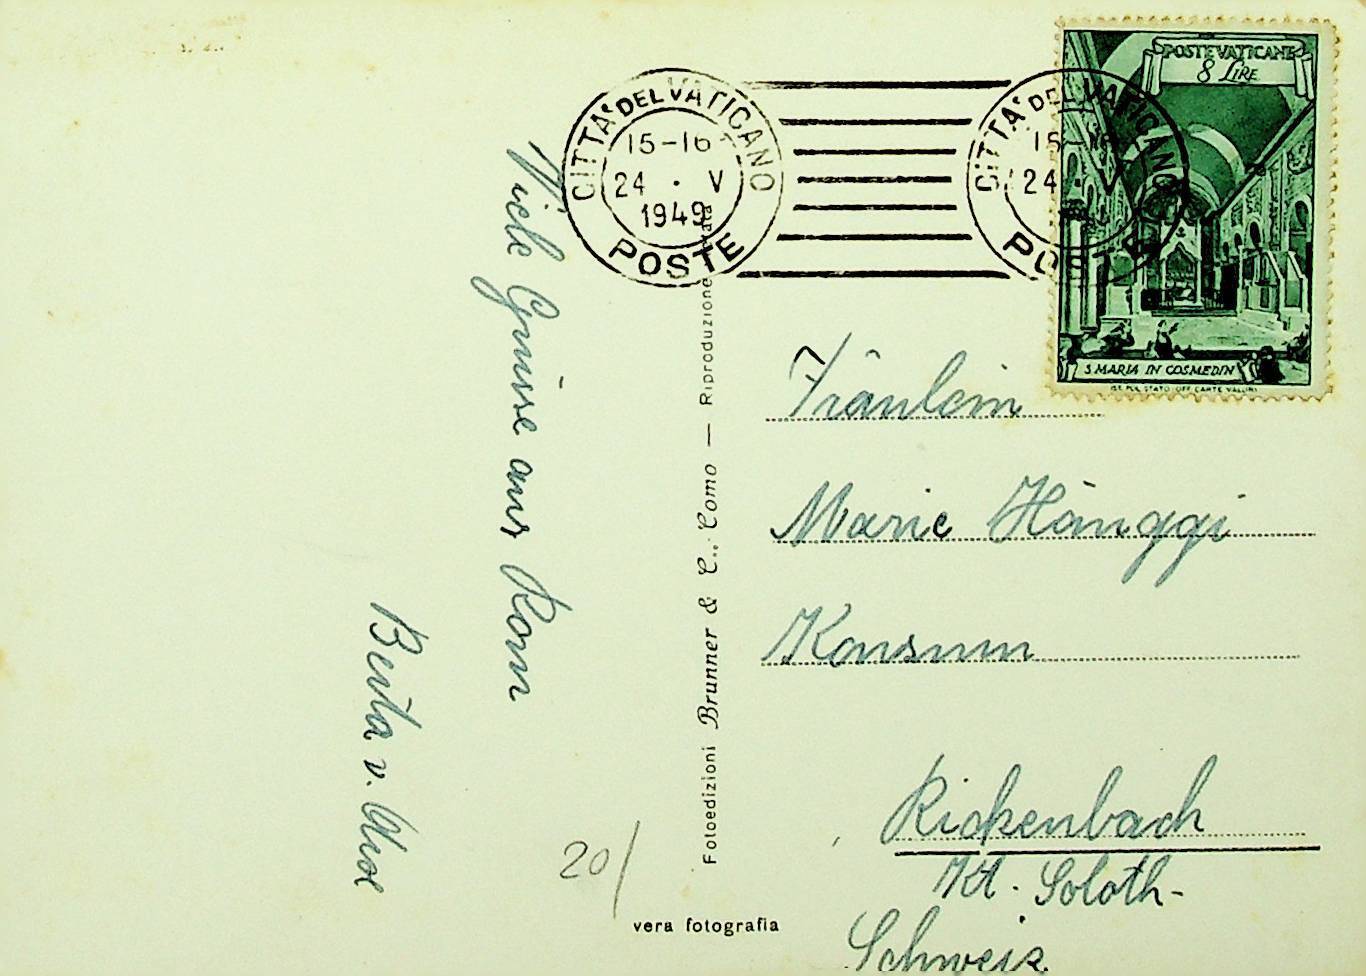 POSTE VATICANE
8 LIRE
S. MARIA IN COSMEDIN
IST. POL. STATO. OFF. CARTE VALORI
CITTA' DEL VATICANO
15-16
24 · V
1949
POSTE
CITTA' DEL VATICANO
15-16
24 · V
POSTE
Viele Grüsse aus Rom
Berta v.
Fotoedizioni Brunner & C., Como — Riproduzione
Fräulein
Marie Hänggi
Konsum
Rickenbach
Kt. Soloth-
Schweiz
20/
vera fotografia